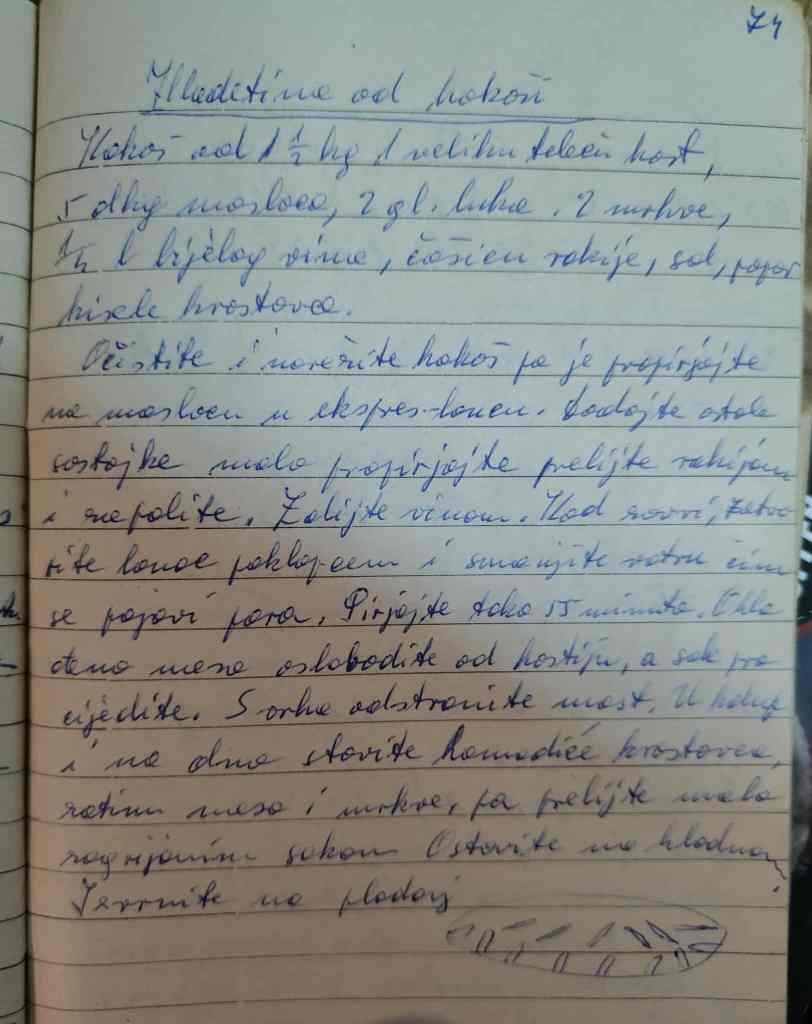 74
Hladetina od kokoši
Kokoš od 1 1/2 kg 1 veliku teleću kost,
5 dkg maslaca, 2 gl. luka. 2 mrkve,
l bijelog vina, čašicu rakije, sol, papar
kisele krastavce.
Očistite i narežite kokoš pa je propirjajte
na maslacu u ekspres-loncu. Dodajte ostale
sastojke malo propirjajte prelijte rakijom
i zapalite. Zalijte vinom. Kad zavri, zatvo
rite lonac poklopcem i smanjite vatru čim
se pojavi para. Pirjajte tako 55 minuta. Ohla
đeno meso oslobodite od kostiju, a sok pro
cijedite. S vrha odstranite mast. U kalup
i na dno stavite komadiće krastavca,
zatim meso i mrkve, pa prelijte malo
zagrijanim sokom Ostavite na hladnom,
Izvrnite na pladanj